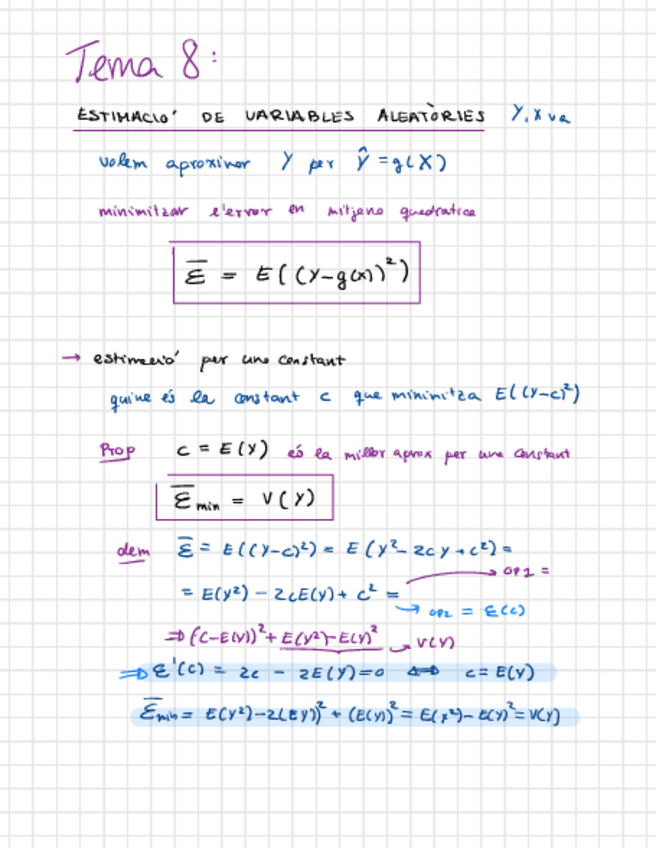 Tema 8:
ESTIMACIÓ DE VARIABLES ALEATÒRIES Y, X va
volem aproximar Y per Ŷ = g(X)
minimitzar l'error en mitjana quadratica
ε̅ = E((Y-g(x))²)
→ estimació per una constant
quina és la constant c que minimitza E((Y-c)²)
Prop c = E(Y) és la millor aprox per una constant
ε̅min = V(Y)
dem ε̅ = E((Y-c)²) = E(Y²-2cY+c²) =
→ OP1 =
= E(Y²) - 2cE(Y) + c² =
→ OP2 = ε(c)
⇒ (C-E(Y))² + E(Y²)-E(Y)² → V(Y)
⇒ ε'(c) = 2c - 2E(Y) = 0 ⇔ c = E(Y)
ε̅min = E(Y²)-2(EY))² + (E(Y))² = E(Y²)-E(Y)² = V(Y)